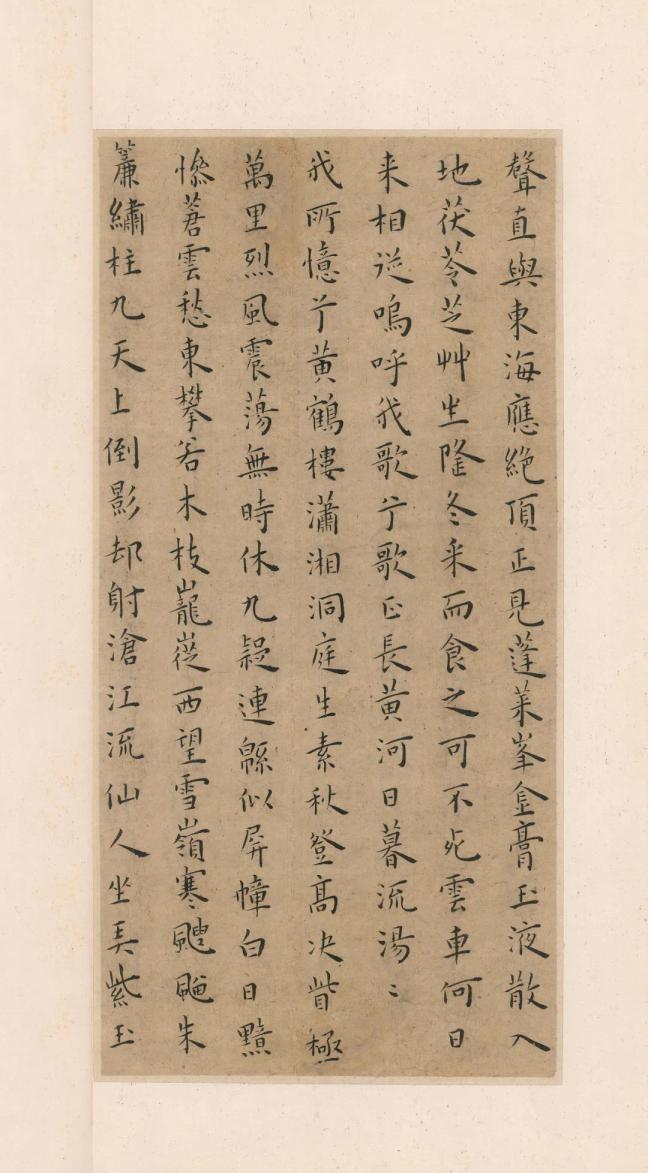 聲直與東海應絕頂正見蓬萊峯金膏玉液散入
地茯苓芝艸生隆冬采而食之可不死雲車何日
来相從嗚呼我歌兮歌正長黄河日暮流湯〻
我所憶兮黄鶴樓瀟湘洞庭生素秋登髙决眥極
萬里烈風震蕩無時休九疑連緜似屏幛白日黯
慘蒼雲愁東攀若木枝巃嵸西望雪嶺寒颼飀朱
簾繡柱九天上倒影却射滄江流仙人坐弄紫玉